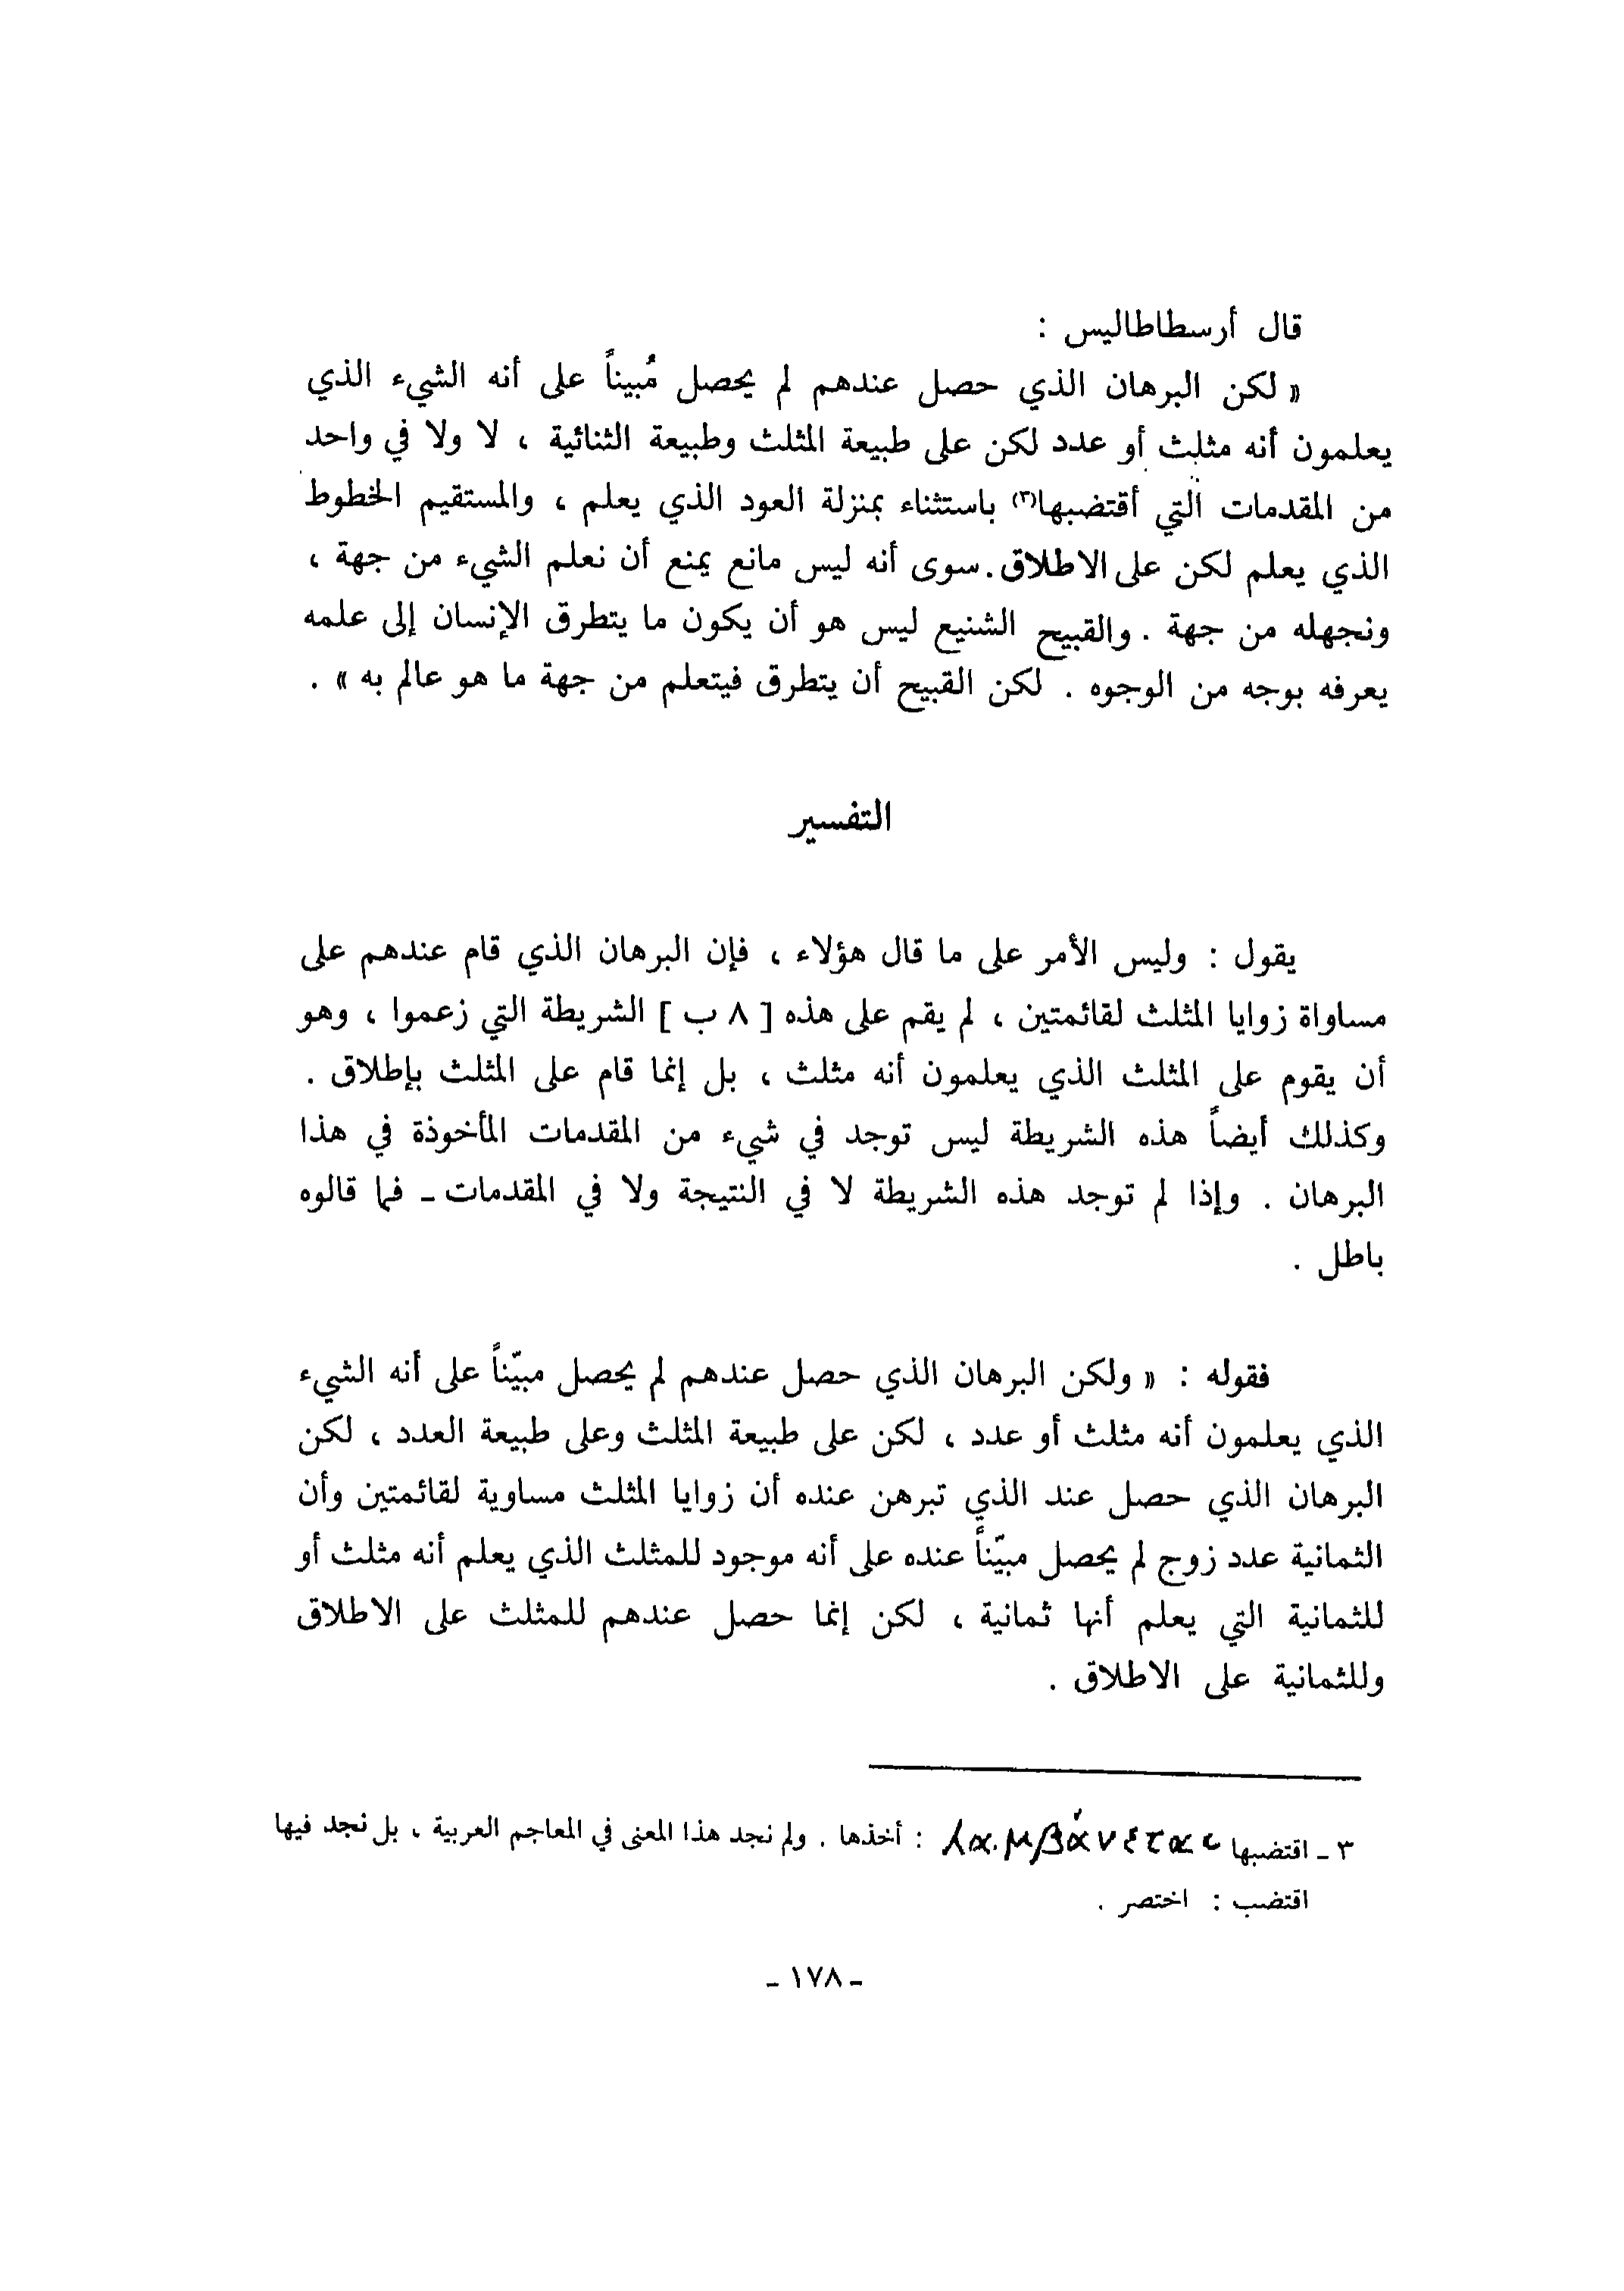 قال أرسطاطاليس :
« لكن البرهان الذي حصل عندهم لم يحصل مُبيناً على أنه الشيء الذي
يعلمون أنه مثلث أو عدد لكن على طبيعة المثلث وطبيعة الثنائية ، لا ولا في واحد
من المقدمات التي أقتضبها(٣) باستثناء بمنزلة العود الذي يعلم ، والمستقيم الخطوط
الذي يعلم لكن على الاطلاق . سوى أنه ليس مانع يمنع أن نعلم الشيء من جهة ،
ونجهله من جهة . والقبيح الشنيع ليس هو أن يكون ما يتطرق الإنسان إلى علمه
يعرفه بوجه من الوجوه . لكن القبيح أن يتطرق فيتعلم من جهة ما هو عالم به » .
التفسير
يقول : وليس الأمر على ما قال هؤلاء ، فإن البرهان الذي قام عندهم على
مساواة زوايا المثلث لقائمتين ، لم يقم على هذه [ ٨ ب ] الشريطة التي زعموا ، وهو
أن يقوم على المثلث الذي يعلمون أنه مثلث ، بل إنما قام على المثلث بإطلاق .
وكذلك أيضاً هذه الشريطة ليس توجد في شيء من المقدمات المأخوذة في هذا
البرهان . وإذا لم توجد هذه الشريطة لا في النتيجة ولا في المقدمات ـ فما قالوه
باطل .
فقوله : « ولكن البرهان الذي حصل عندهم لم يحصل مبيّناً على أنه الشيء
الذي يعلمون أنه مثلث أو عدد ، لكن على طبيعة المثلث وعلى طبيعة العدد ، لكن
البرهان الذي حصل عند الذي تبرهن عنده أن زوايا المثلث مساوية لقائمتين وأن
الثمانية عدد زوج لم يحصل مبيّناً عنده على أنه موجود للمثلث الذي يعلم أنه مثلث أو
للثمانية التي يعلم أنها ثمانية ، لكن إنما حصل عندهم للمثلث على الاطلاق
وللثمانية على الاطلاق .
٣ ـ اقتضبها λαμβάνεται : أخذها . ولم نجد هذا المعنى في المعاجم العربية ، بل نجد فيها
اقتضب : اختصر .
ـ ١٧٨ ـ